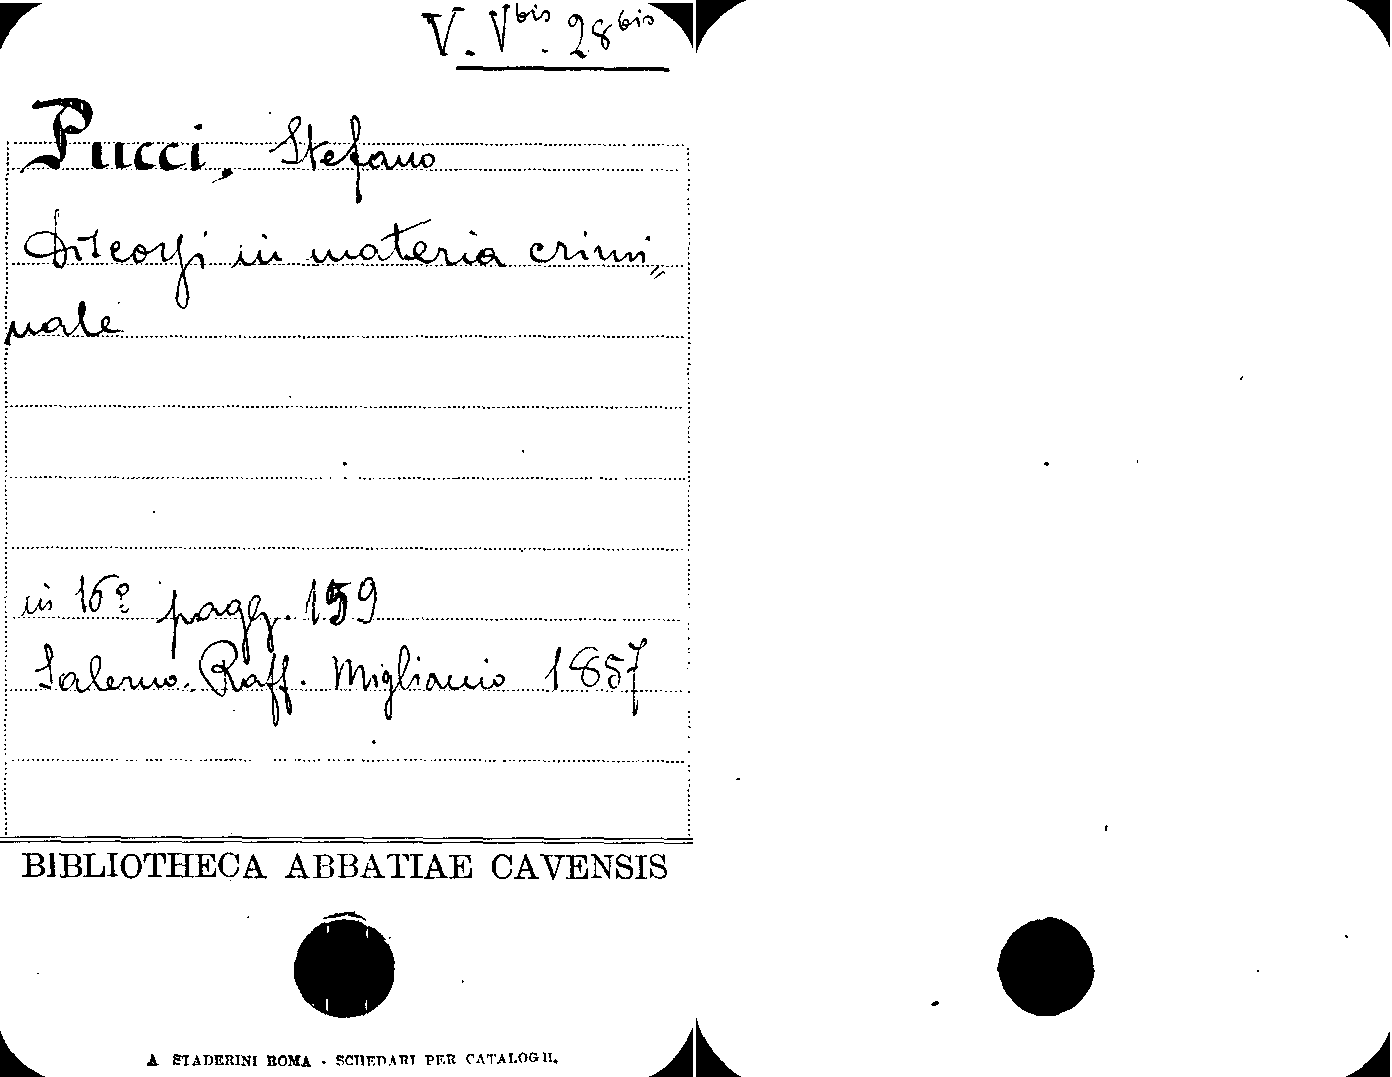 V. Vbis. 28bis
Pucci, Stefano
Discorsi in materia crimi,,
nale
in 16º pagg. 159
Salerno. Raff. Migliaccio 1857
BIBLIOTHECA ABBATIAE CAVENSIS
A STADERINI ROMA - SCHEDARI PER CATALOGII.